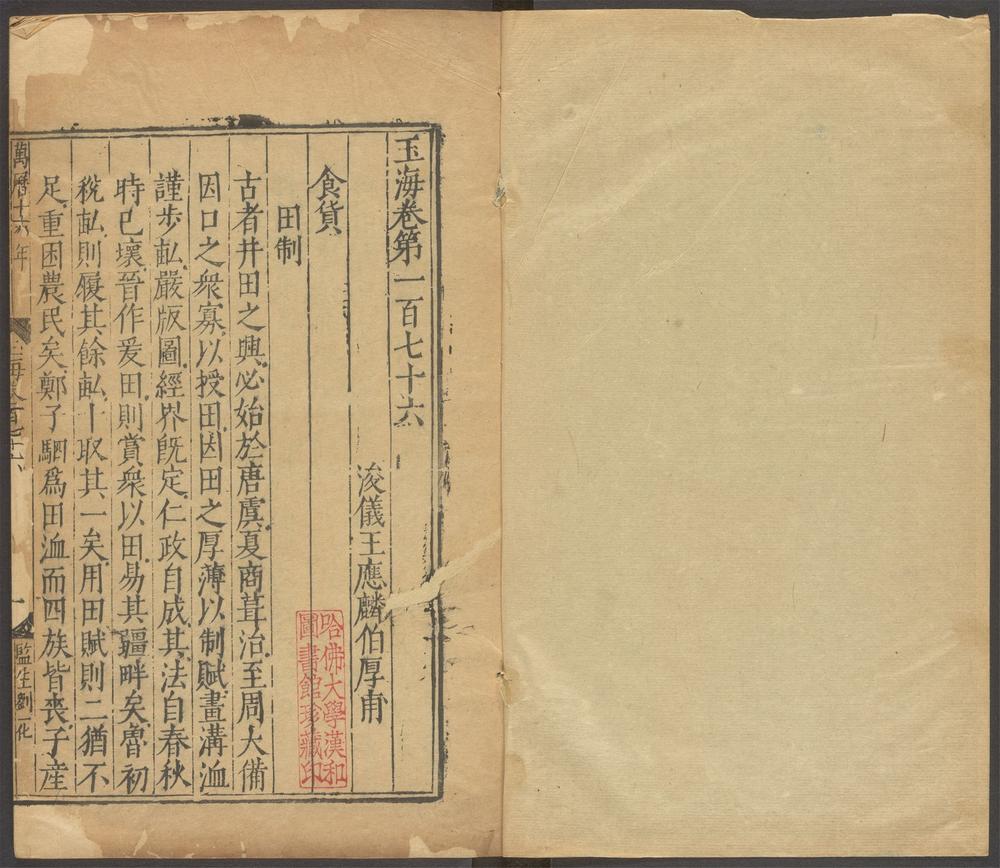 玉海卷第一百七十六
浚儀王應麟伯厚甫
食貨
田制
古者井田之興必始於唐虞夏商葺治至周大備
因口之衆寡以授田因田之厚薄以制賦畫溝洫
謹步畝嚴版圖經界既定仁政自成其法自春秋
時已壞晉作爰田則賞衆以田易其疆畔矣魯初
稅畝則履其餘畝十取其一矣用田賦則二猶不
足重困農民矣鄭子駟爲田洫而四族皆喪子産
萬曆十六年
玉海卷百七十六
一
監生劉一化
哈佛大學漢和
圖書館珍藏印